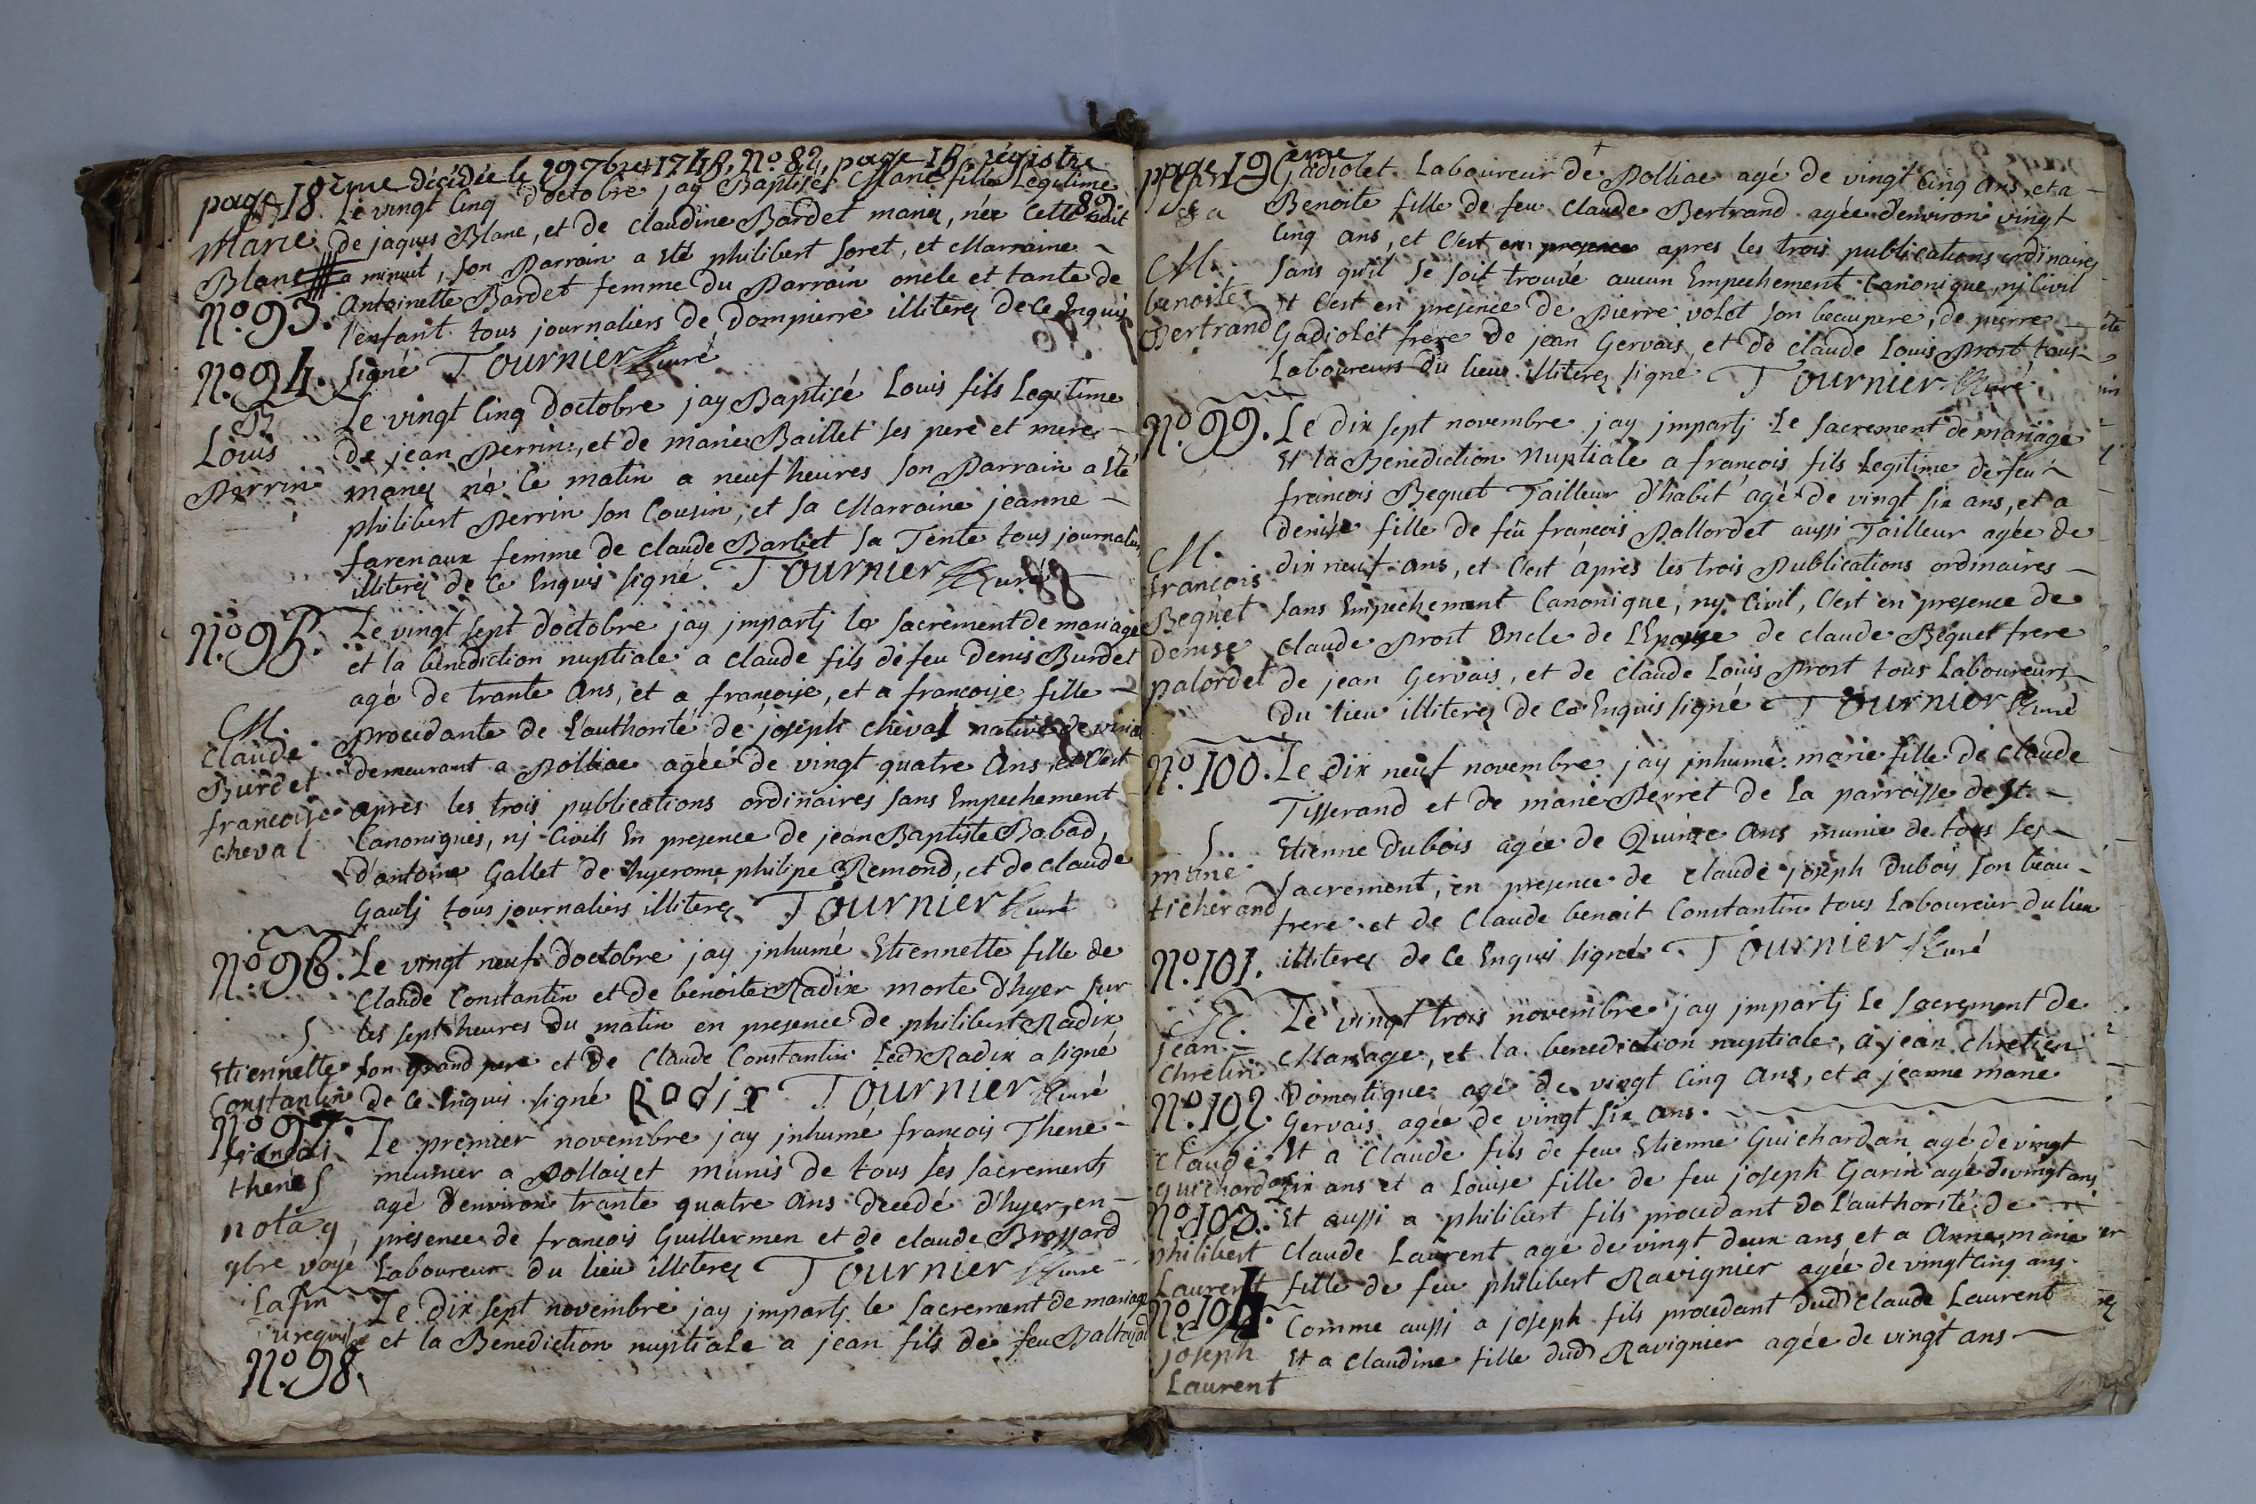 page 18 ème décédée le 29 7bre 1748, No 82, page 18 régistre
Le vingt Cinq d'octobre jay Baptisé Marie fille Legitime
Marie de jaques Blanc, et de Claudine Bardet mariez, née
Blanc a minuit, son Parrain a été philibert Loret, et Marraine
No. 93. Antoinette Bardet femme du Parrain oncle et tante de
l'enfant tous journaliers de Dompierre illiterez de Ce Enquis
No. 94. signé Tournier Curé
B Le vingt Cinq d'octobre jay Baptisé Louis fils Legitime
Louis de jean Perrin, et de marie Baillet ses pere et mere
Perrin mariez né Ce matin a neuf heures son Parrain a été
philibert Perrin son Cousin, et sa Marraine jeanne
farenaux femme de Claude Barbet sa Tente tous journaliers
illiterez de Ce Enquis signé Tournier Curé
No. 95. Le vingt sept d'octobre jay impartj le sacrement de mariage
et la benediction nuptiale a Claude fils de feu Denis Burdet
agé de trante Ans, et a francoise, et a francoise fille
M. procedante de L'authorité de joseph Cheval native de
Claude demeurant a Polliac agée de vingt quatre Ans, et C'est
Burdet après les trois publications ordinaires sans Empechement
francoise Canoniques, nj Civils En presence de jean Baptiste Babad,
cheval d'antoine Gallet de hyerome philipe Remond, et de Claude
Gaulj tous journaliers illiterez Tournier Curé
No. 96. Le vingt neuf d'octobre jay jnhumé Etiennette fille de
Claude Constantin et de benoite Radix morte d'hyer sur
S les sept heures du matin en presence de philibert Radix
Etiennette son grand pere et de Claude Constantin Led Radix a signé
Constantin de Ce Enquis signé Radix Tournier Curé
No. 97. Le premier novembre jay jnhumé francois Thene
francois meunier a Pollaizet munis de tous ses sacrements
thene S agé d'environ trante quatre Ans decedé d'hyer, en
nota 9 présence de francois Guillermen et de claude Brossard
9bre voyé Laboureur du lieu illiterez Tournier Curé
La fin Le Dix sept novembre jay jmpartj le sacrement de mariage
et la Benediction nuptiale a jean fils de feu
No. 98.
page 19 ème
Gadiolet Laboureur de Polliac agé de vingt Cinq ans, et a
Benoite fille de feu Claude Bertrand agée d'environ vingt
Cinq ans, et C'est en presence apres les trois publications ordinaires
M. sans qu'il se soit trouvé aucun Empechement Canonique, nj Civil
benoite et C'est en presence de Pierre volot son beaupere, de pierre
Bertrand Gadiolet frere de jean Gervais, et de Claude Louis Prost tous
Laboureurs du lieu illiterez signé Tournier Curé
No. 99. Le Dix sept novembre jay jmpartj Le sacrement de mariage
et la Benediction Nuptiale a francois fils Legitime de feu
francois Bequet Tailleur d'habit agé de vingt six ans, et a
denise fille de feu francois Pallordet aussi Tailleur agée de
M. dix neuf ans, et C'est après les trois Publications ordinaires
francois sans Empechement Canonique, ny Civil, C'est en presence de
Bequet Claude Prost Oncle de L'Epouse de Claude Bequet frere
denise de jean Gervais, et de Claude Louis Prost tous Laboureurs
palordet du lieu illiterez de Ce Enquis signé Tournier Curé
No. 100. Le dix neuf novembre jay jnhumé marie fille de Claude
Tisserand et de marie Perret de La parroisse de St.
S. Etienne Dubois agée de Quinze Ans munie de tous ses
marie sacrement, en presence de Claude joseph Dubois son beau
ticherand frere et de Claude benoit Constantin tous Laboureur du lieu
No. 101. illiterez de Ce Enquis signé Tournier Curé
M. Le vingt trois novembre jay jmpartj Le sacrement de
jean Mariage, et la benediction nuptiale, a jean Chretien
Chretin Domestique agé de vingt Cinq Ans, et a jeanne marie
No. 102 Gervais agée de vingt six ans.
Claude et a Claude fils de feu Etienne Guichardan agé de vingt
guichardan six ans et a Louise fille de feu joseph Garin agé de vingt ans
No. 103. et aussi a philibert fils procedant de L'authorité de
philibert Claude Laurent agé de vingt deux ans et a Anne marie
Laurent fille de feu philibert Ravignier agée de vingt Cinq ans.
No. 104. Comme aussi a joseph fils procedant dud Claude Laurent
joseph et a Claudine fille dud Ravignier agée de vingt ans
Laurent